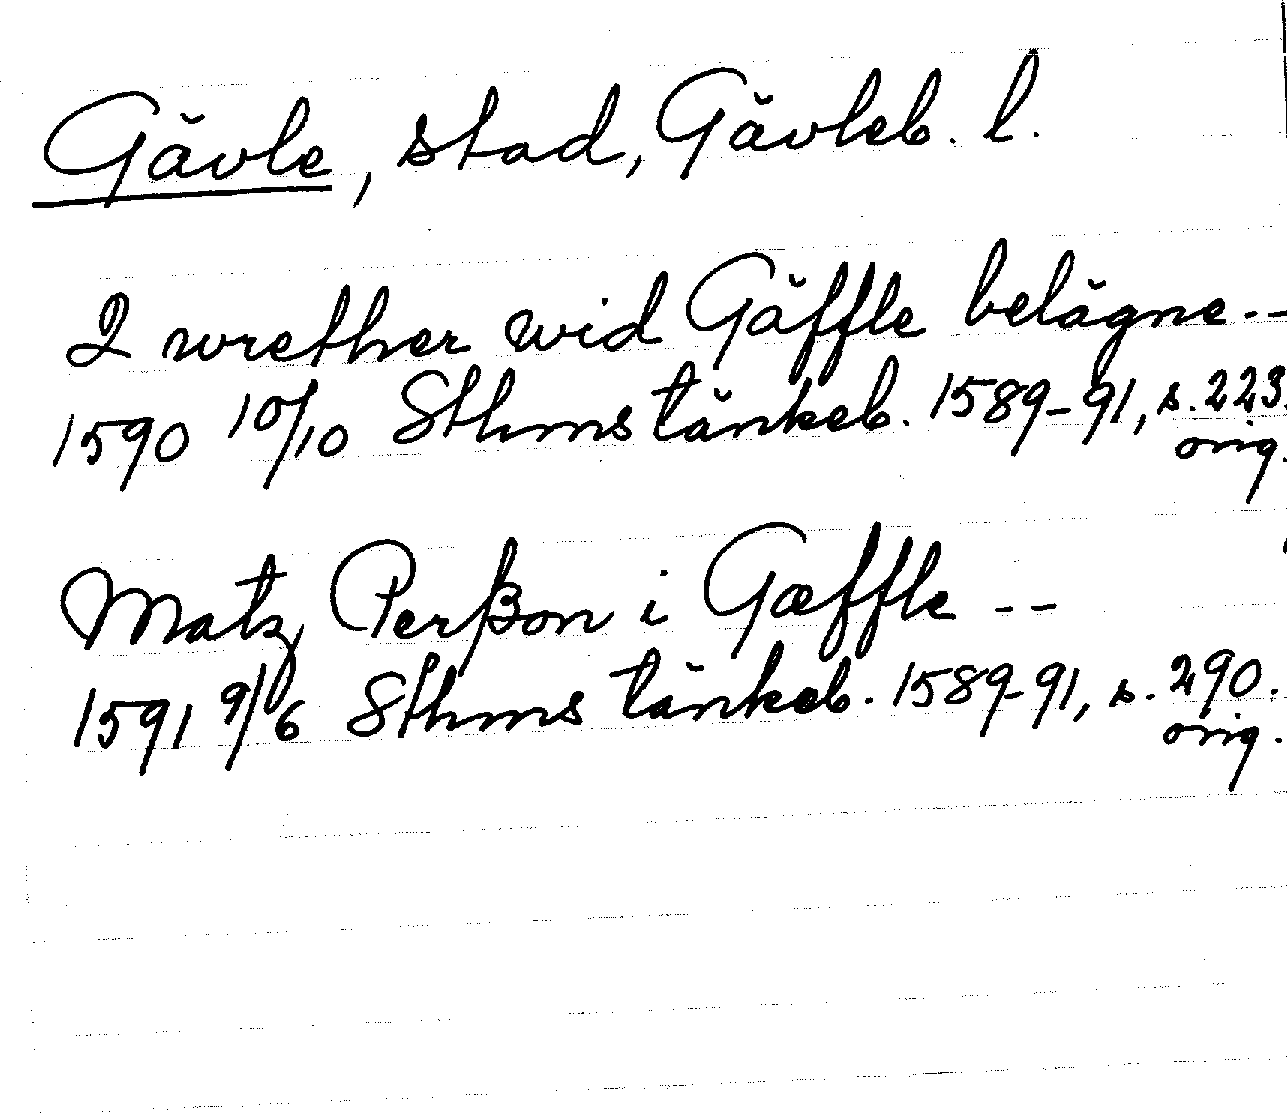 Gävle, stad, Gävleb. l.
2 wrether wid Gäffle belägne --
1590 10/10 Sthms tänkeb. 1589-91, s. 223.
orig.
Matz Perßon i Gæffle --
1591 9/6 Sthms tänkeb. 1589-91, s. 290.
orig.